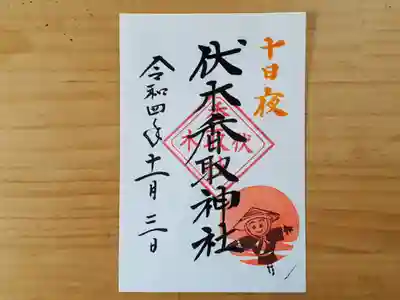 十日夜
伏木香取神社
令和四年十一月三日